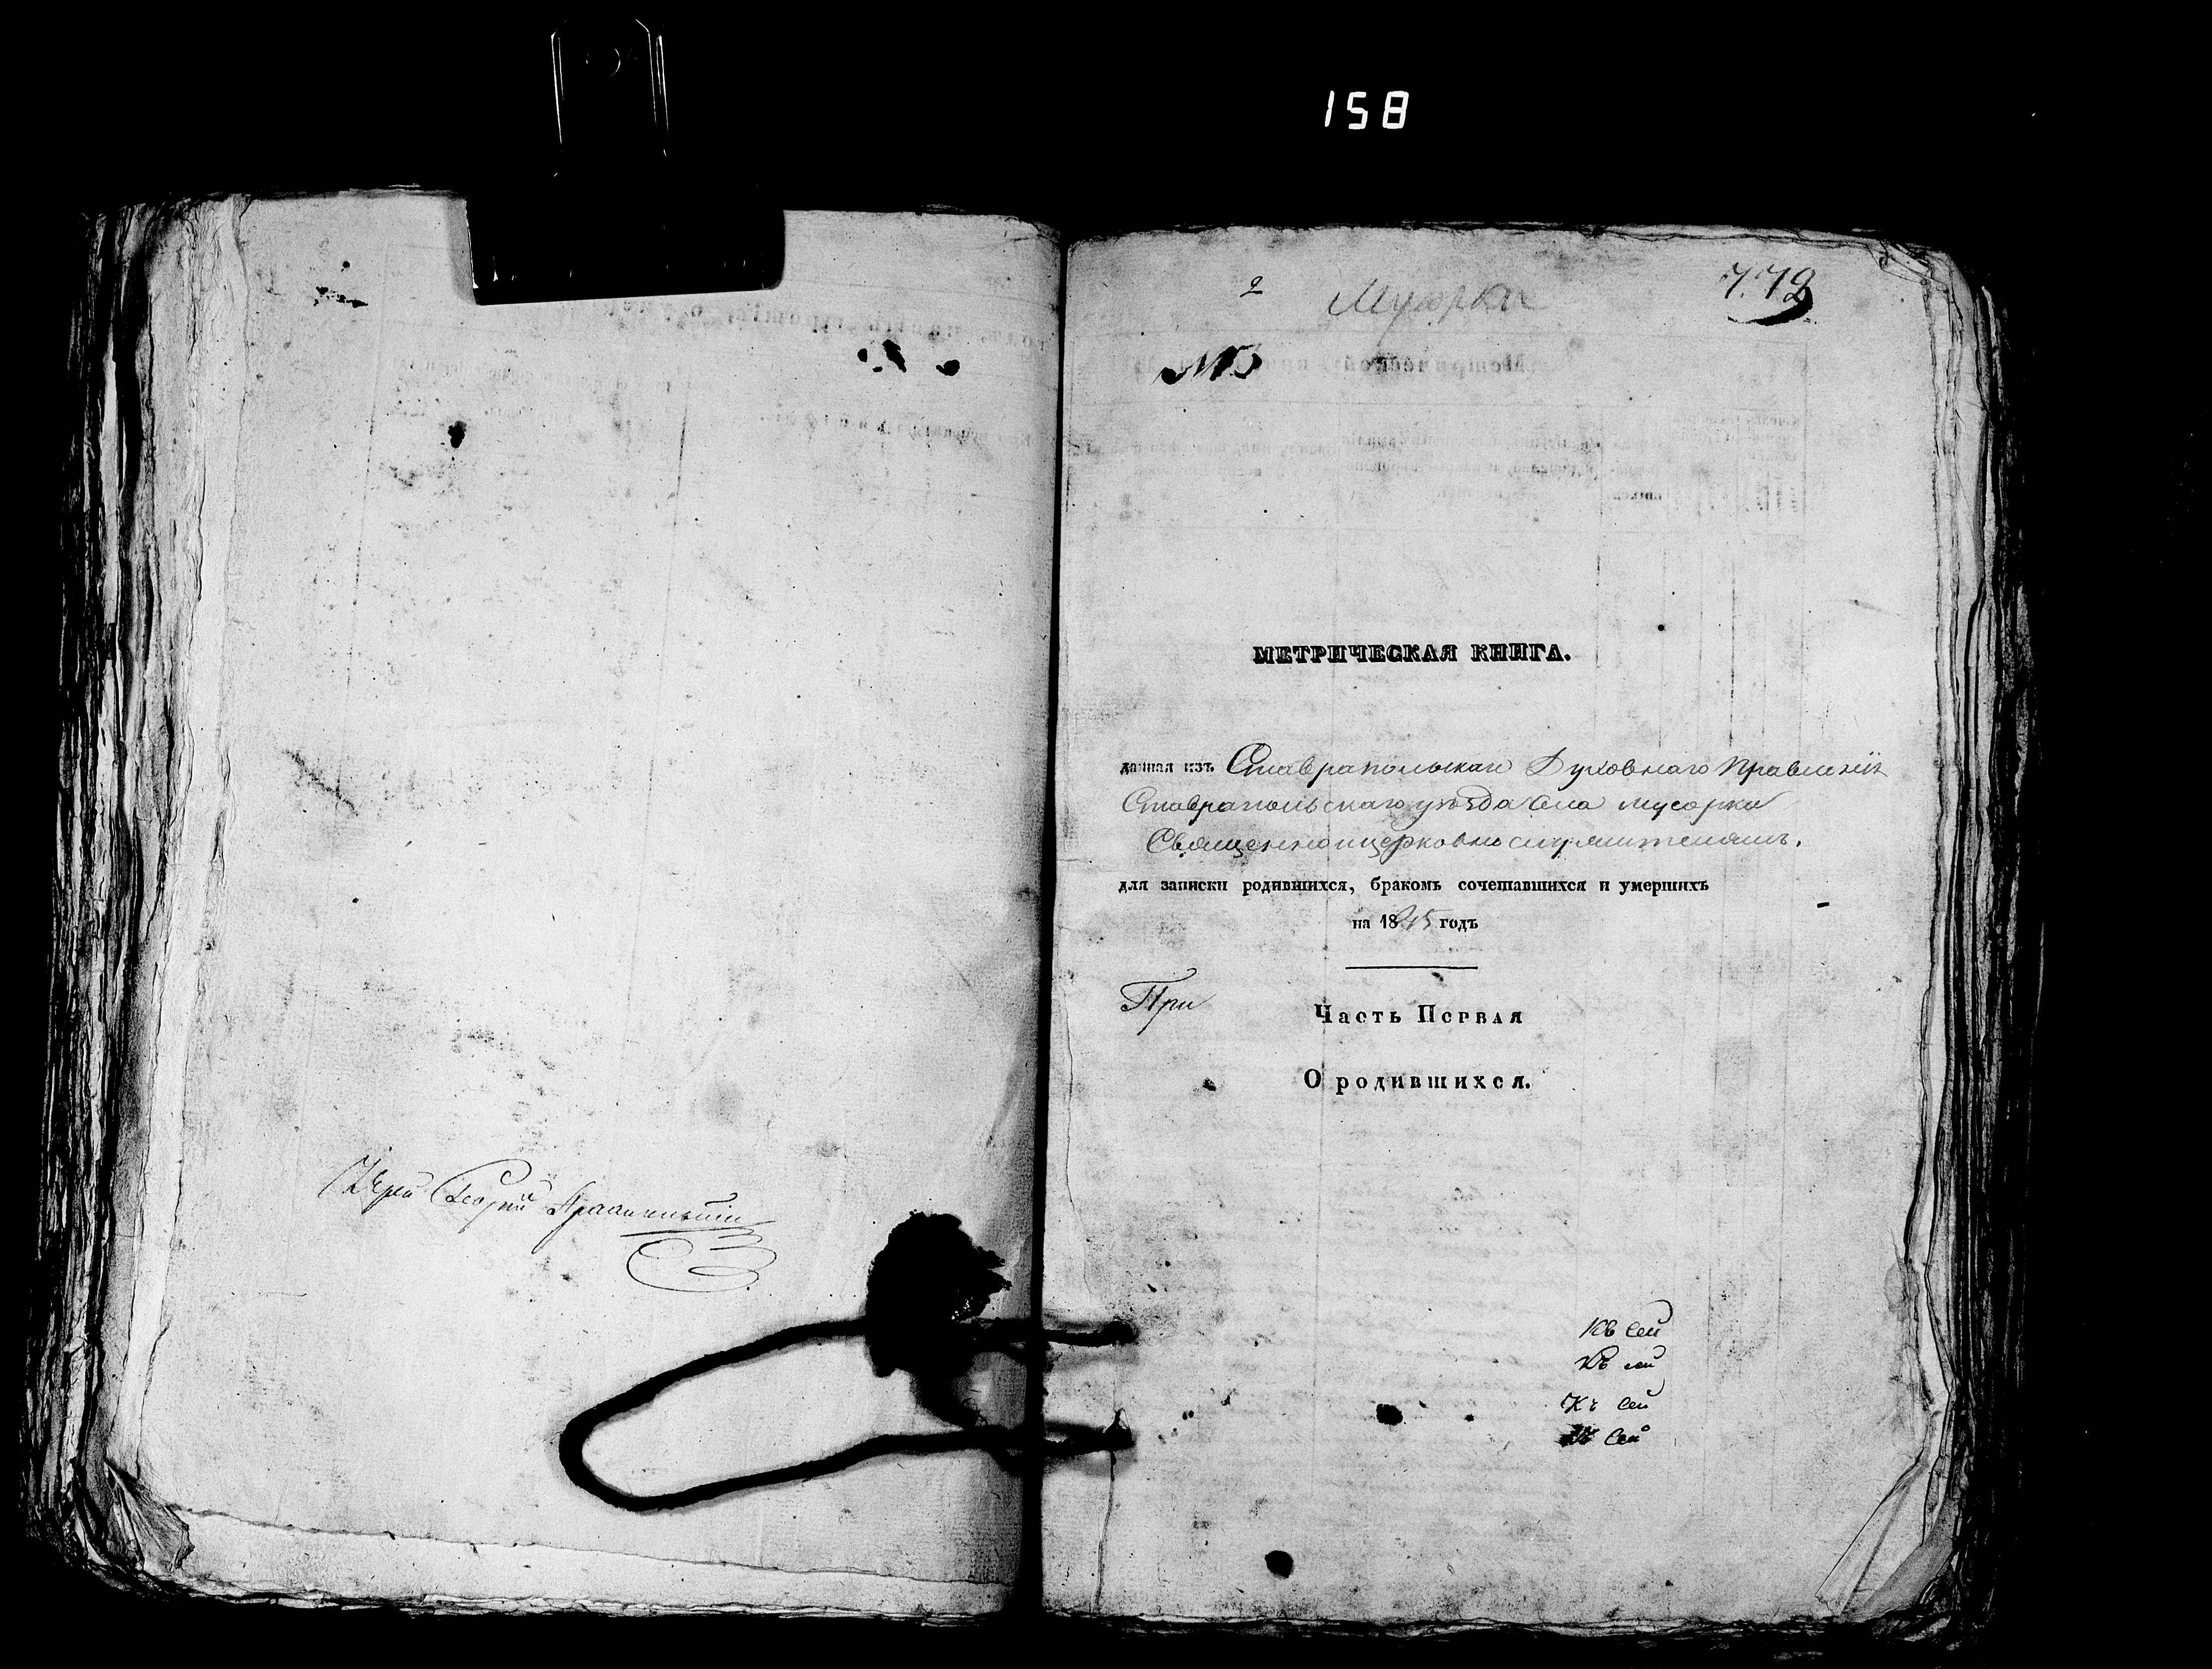 158
2
Мусорка
772
МЕТРИЧЕСКАЯ КНИГА.
данная изъ Ставрапольскаго Духовнаго Правленія
Ставрапольскаго уѣзда села Мусорки
Священноицерковнослужителямъ.
для записки родившихся, бракомъ сочетавшихся и умершихъ
на 1845 годъ
При
Часть Первая
О родившихся.
Іерей Георгій
Къ сей
Къ сей
Къ сей
Къ сей